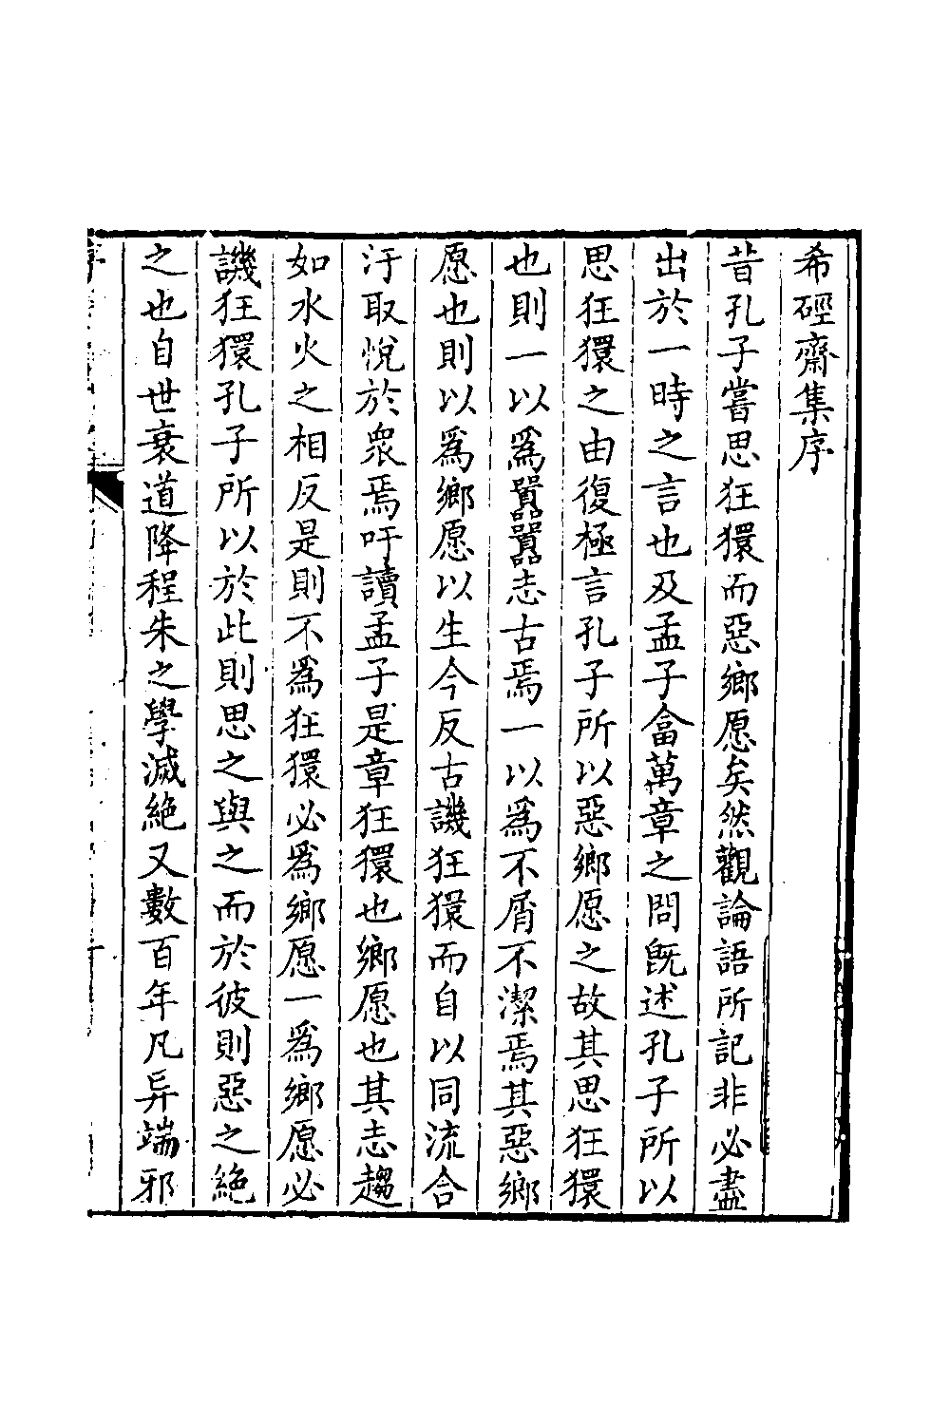 希硜齋集序
昔孔子嘗思狂獧而惡鄉愿矣然觀論語所記非必盡
出於一時之言也及孟子畣萬章之問旣述孔子所以
思狂獧之由復極言孔子所以惡鄉愿之故其思狂獧
也則一以爲嚻嚻志古焉一以爲不屑不潔焉其惡鄉
愿也則以爲鄉愿以生今反古譏狂獧而自以同流合
汙取悅於衆焉吁讀孟子是章狂獧也鄉愿也其志趨
如水火之相反是則不爲狂獧必爲鄉愿一爲鄉愿必
譏狂獧孔子所以於此則思之與之而於彼則惡之絶
之也自世衰道降程朱之學滅絶又數百年凡异端邪